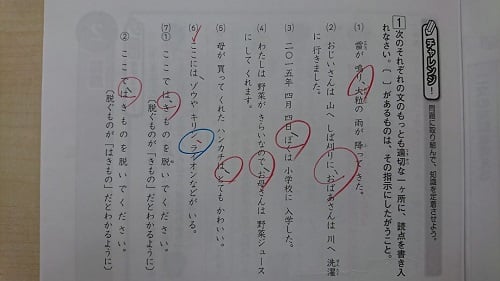 チャレンジ!
問題に取り組んで、知識を定着させよう。
1 次のそれぞれの文のもっとも適切な一ヶ所に、読点を書き入
れなさい。〔 〕があるものは、その指示にしたがうこと。
(1) 雷が鳴り、大粒の雨が降ってきた。
(2) おじいさんは山へしば刈りに、おばあさんは川へ洗濯
に行きました。
(3) 二〇一五年四月四日、ぼくは小学校に入学した。
(4) わたしは野菜がきらいなので、お母さんは野菜ジュース
にしてくれます。
(5) 母が買ってくれたハンカチは、とてもかわいい。
(6) ここには、ゾウやキリン、ライオンなどがいる。
(7) ① ここでは、きものを脱いでください。
〔脱ぐものが「きもの」だとわかるように〕
② ここで、はきものを脱いでください。
〔脱ぐものが「はきもの」だとわかるように〕